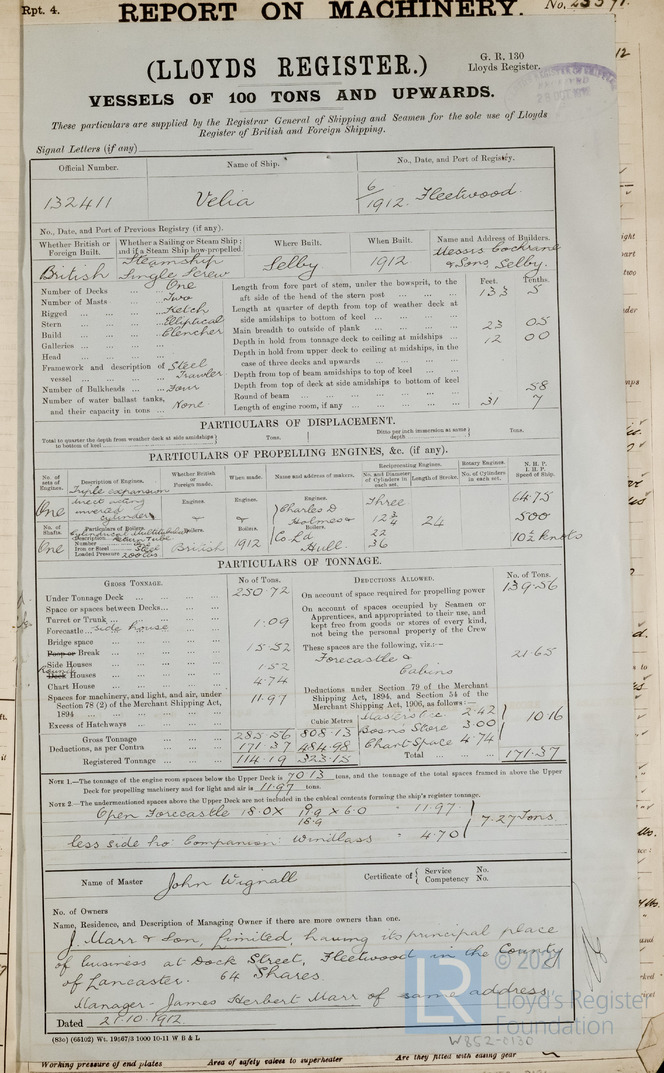 Rpt. 4.
REPORT ON MACHINERY.
No.
G. R. 130
Lloyds Register.
(LLOYDS REGISTER.)
VESSELS OF 100 TONS AND UPWARDS.
These particulars are supplied by the Registrar General of Shipping and Seamen for the sole use of Lloyds
Register of British and Foreign Shipping.
Signal Letters (if any)
Official Number. Name of Ship. No., Date, and Port of Registry.
132411 Velia 6/1912. Fleetwood.
No., Date, and Port of Previous Registry (if any).
Whether British or Foreign Built. Whether a Sailing or Steam Ship; and if a Steam Ship how propelled. Where Built. When Built. Name and Address of Builders.
British Steamship Single Screw Selby 1912 Messrs Cochrane & Sons, Selby.
Number of Decks ... One
Number of Masts ... Two
Rigged ... Ketch
Stern ... Elliptical
Build ... Clencher
Galleries ...
Head ...
Framework and description of vessel ... Steel Trawler
Number of Bulkheads ... Four
Number of water ballast tanks, and their capacity in tons ... None
Feet. Tenths.
Length from fore part of stem, under the bowsprit, to the aft side of the head of the stern post ... 133 5
Length at quarter of depth from top of weather deck at side amidships to bottom of keel ...
Main breadth to outside of plank ... 23 05
Depth in hold from tonnage deck to ceiling at midships ... 12 00
Depth in hold from upper deck to ceiling at midships, in the case of three decks and upwards ...
Depth from top of beam amidships to top of keel ...
Depth from top of deck at side amidships to bottom of keel
Round of beam ... 58
Length of engine room, if any ... 31 7
PARTICULARS OF DISPLACEMENT.
Total to quarter the depth from weather deck at side amidships to bottom of keel Tons. Ditto per inch immersion at same depth Tons.
PARTICULARS OF PROPELLING ENGINES, &c. (if any).
No. of sets of Engines. Description of Engines. Whether British or Foreign made. When made. Name and address of makers. Reciprocating Engines. Rotary Engines. N. H. P.
No. and Diameter of Cylinders in each set. Length of Stroke. No. of Cylinders in each set. I. H. P. Speed of Ship.
One Triple expansion direct acting inverted cylinders
Engines. Engines. Engines. Charles D Holmes & Co. Ld Hull.
Three 12 3/4 22 36 24 64.75 500 10½ knots
No. of Shafts. Particulars of Boilers. Boilers. Boilers. Boilers.
One
Description Cylindrical Multitubular Return Tube
Number One
Iron or Steel Steel
Loaded Pressure 200 lbs
British 1912
PARTICULARS OF TONNAGE.
GROSS TONNAGE. No. of Tons.
Under Tonnage Deck ... 250.72
Space or spaces between Decks ...
Turret or Trunk ...
Forecastle .. side house 1.09
Bridge space ...
Poop or Break ... 15.52
Side Houses ... 1.52
Deck Houses ... 4.74
Chart House ...
Spaces for machinery, and light, and air, under Section 78 (2) of the Merchant Shipping Act, 1894 ... 11.97
Excess of Hatchways ...
Cubic Metres
Gross Tonnage 285.56 808.13
Deductions, as per Contra 171.37 484.98
Registered Tonnage 114.19 323.15
DEDUCTIONS ALLOWED. No. of Tons.
On account of space required for propelling power 139.56
On account of spaces occupied by Seamen or Apprentices, and appropriated to their use, and kept free from goods or stores of every kind, not being the personal property of the Crew
These spaces are the following, viz.:—
Forecastle & Cabins 21.65
Deductions under Section 79 of the Merchant Shipping Act, 1894, and Section 54 of the Merchant Shipping Act, 1906, as follows:—
2.42
Boasns Store 3.00
Chart Space 4.74
10.16
Total ... 171.37
NOTE 1.—The tonnage of the engine room spaces below the Upper Deck is 70.13 tons, and the tonnage of the total spaces framed in above the Upper
Deck for propelling machinery and for light and air is 11.97 tons.
NOTE 2.—The undermentioned spaces above the Upper Deck are not included in the cubical contents forming the ship's register tonnage.
Open Forecastle 18.0 x x 6.0 = 11.97
less side ho: Companion: Windlass = 4.70
7.27 Tons
Name of Master John Wignall Certificate of { Service No. Competency No.
No. of Owners
Name, Residence, and Description of Managing Owner if there are more owners than one.
J. Marr & Son, Limited, having its principal place
of business at Dock Street, Fleetwood in the County
of Lancaster. 64 Shares.
Manager - James Herbert Marr of same address
Dated 21.10.1912.
(83o) (66102) Wt. 19567/3 1000 10-11 W B & L
W852-0130
Working pressure of end plates Area of safety valves to superheater Are they fitted with easing gear
LR
© 2021
Lloyd's Register
Foundation